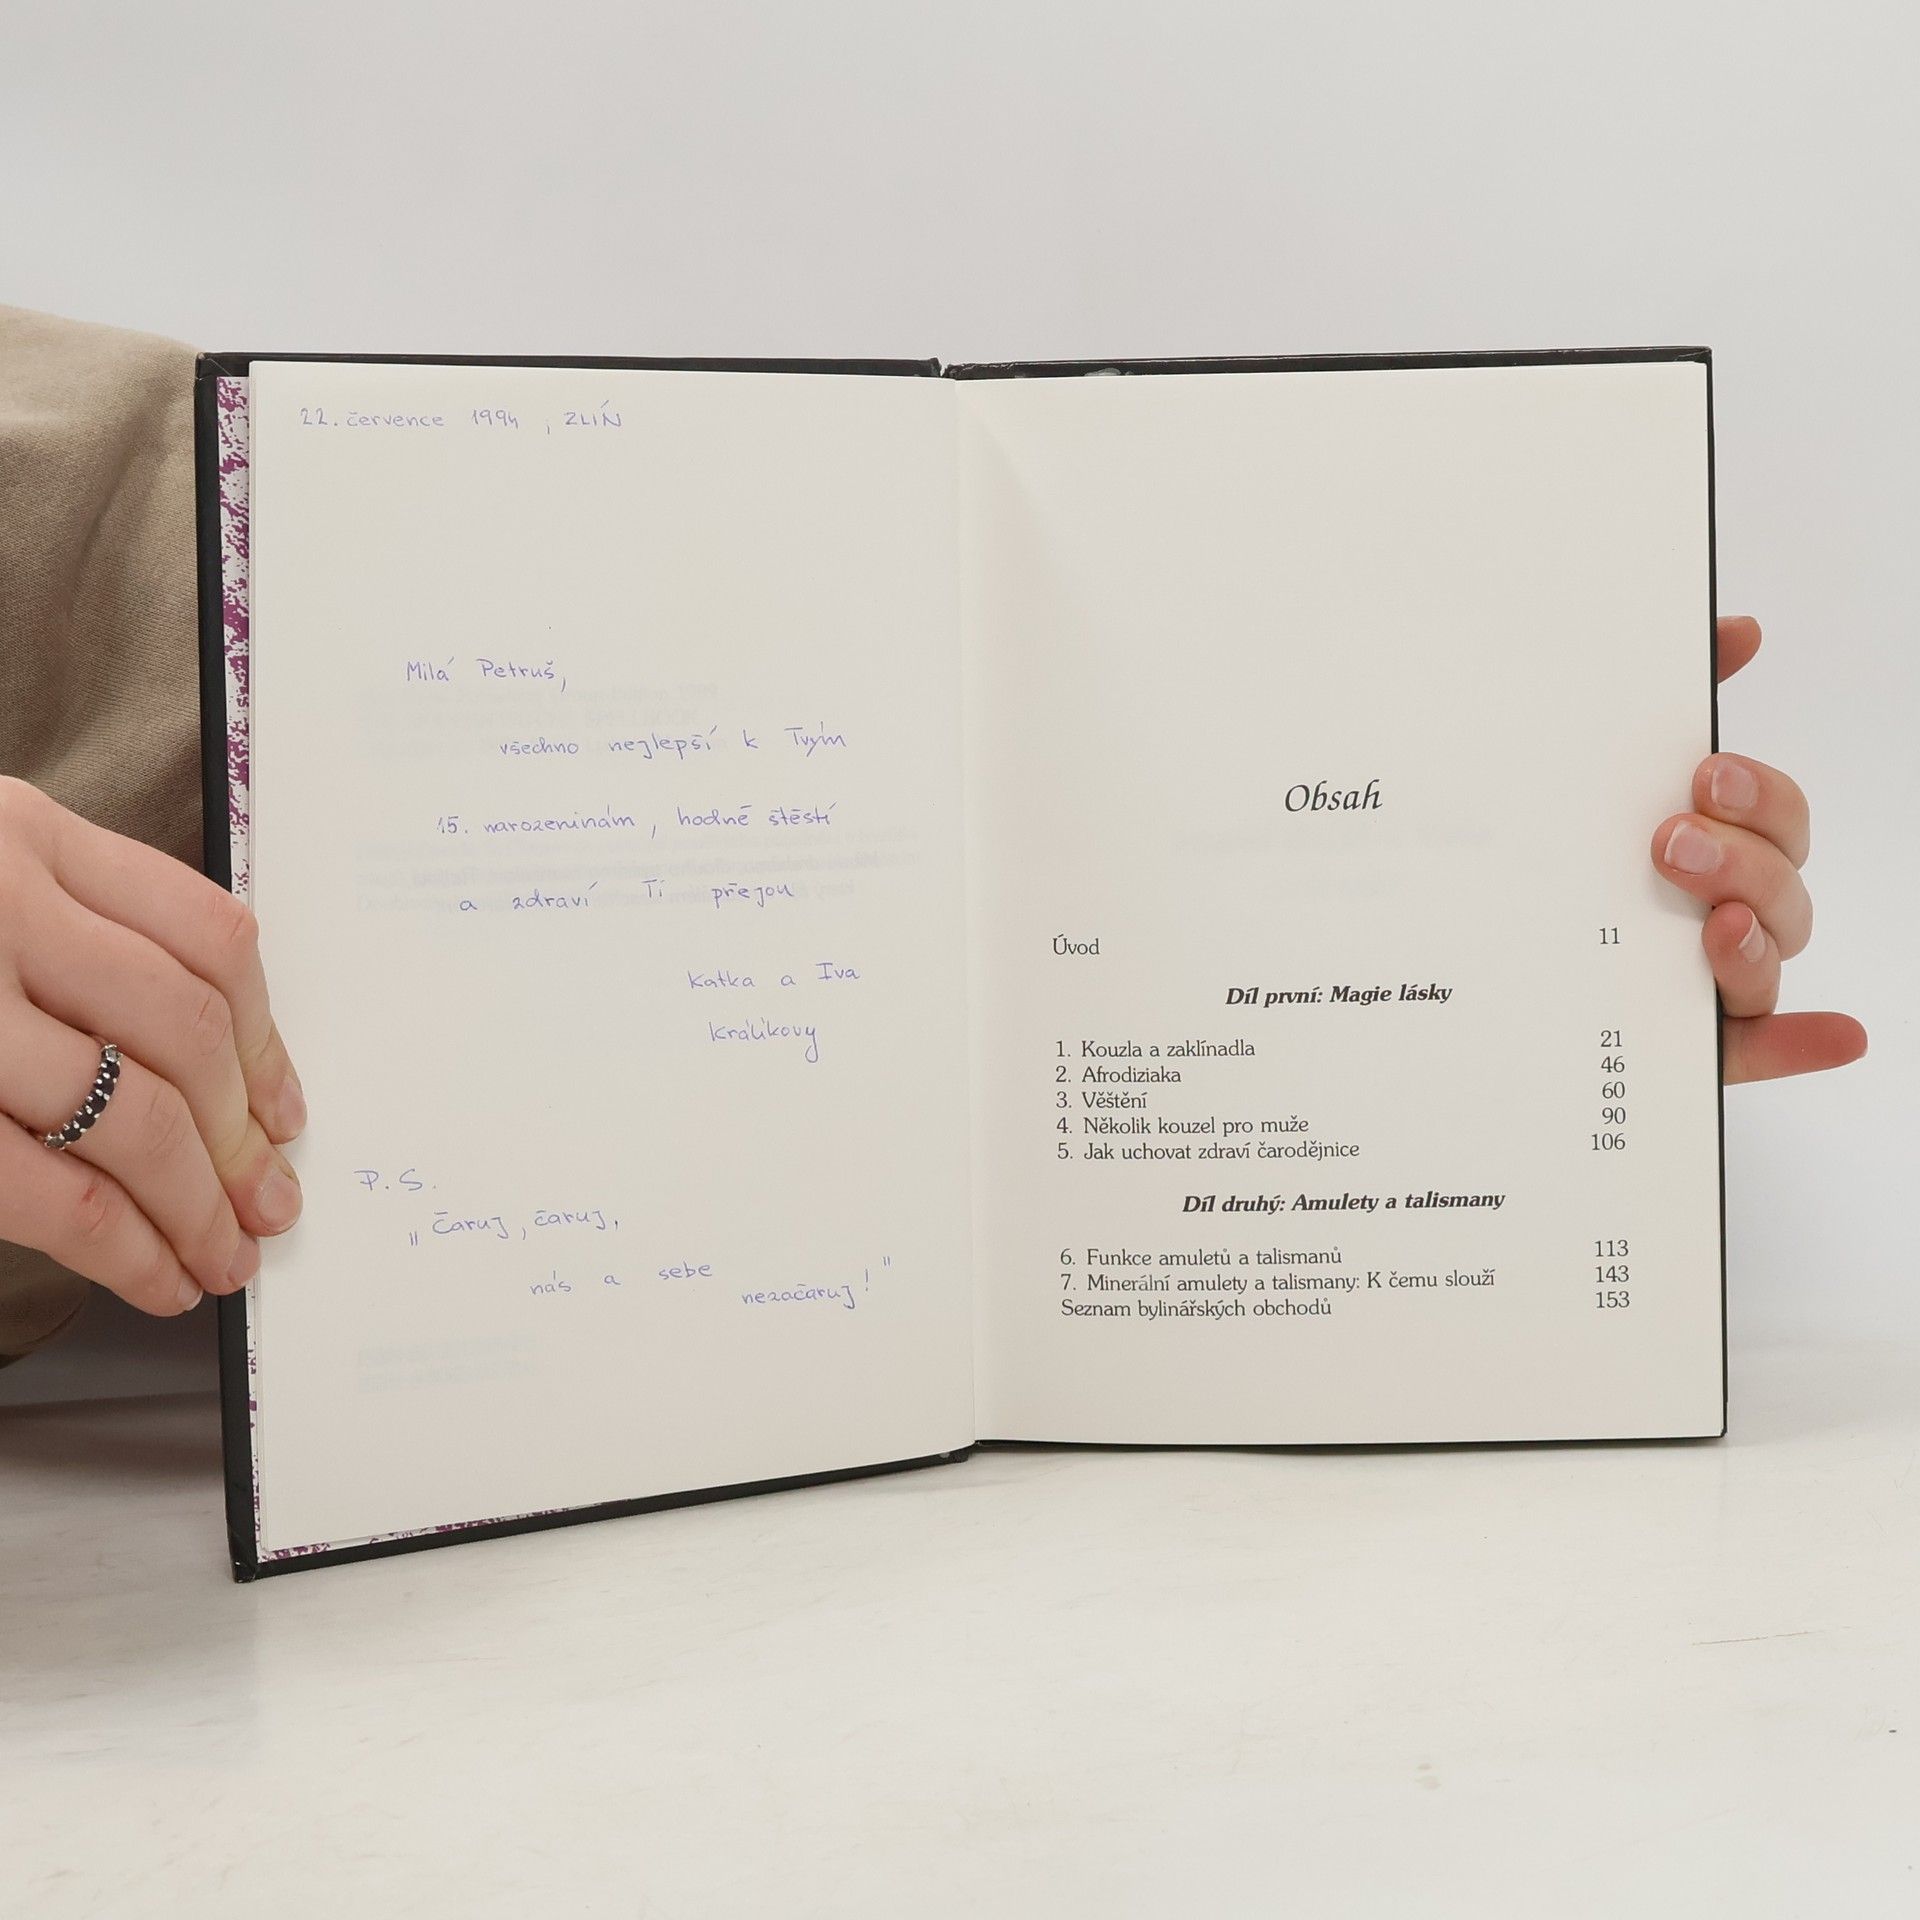 22. července 1994, ZLÍN
Milá Petruš,
všechno nejlepší k Tvým
15. narozeninám, hodně štěstí
a zdraví Ti přejou
Katka a Iva
Králíkovy
P.S.
„Čaruj, čaruj,
nás a sebe
nezačaruj!"
Obsah
Úvod 11
Díl první: Magie lásky
1. Kouzla a zaklínadla 21
2. Afrodiziaka 46
3. Věštění 60
4. Několik kouzel pro muže 90
5. Jak uchovat zdraví čarodějnice 106
Díl druhý: Amulety a talismany
6. Funkce amuletů a talismanů 113
7. Minerální amulety a talismany: K čemu slouží 143
Seznam bylinářských obchodů 153